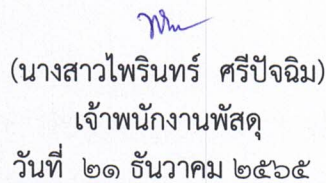 (นางสาวไพรินทร์ ศรีปัจฉิม)
เจ้าพนักงานพัสดุ
วันที่ ๒๑ ธันวาคม ๒๕๖๕